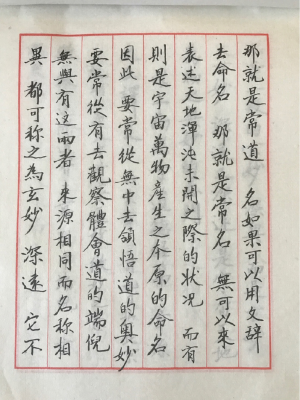 那就是常道　名如果可以用文辞
去命名　那就是常名　無可以来
表述天地渾沌未開之際的状况　而有
則是宇宙萬物產生之本原的命名
因此　要常從無中去領悟道的奥妙
要常從有去觀察體會道的端倪
無與有這兩者　來源相同而名称相
異　都可称之為玄妙　深遠　它不